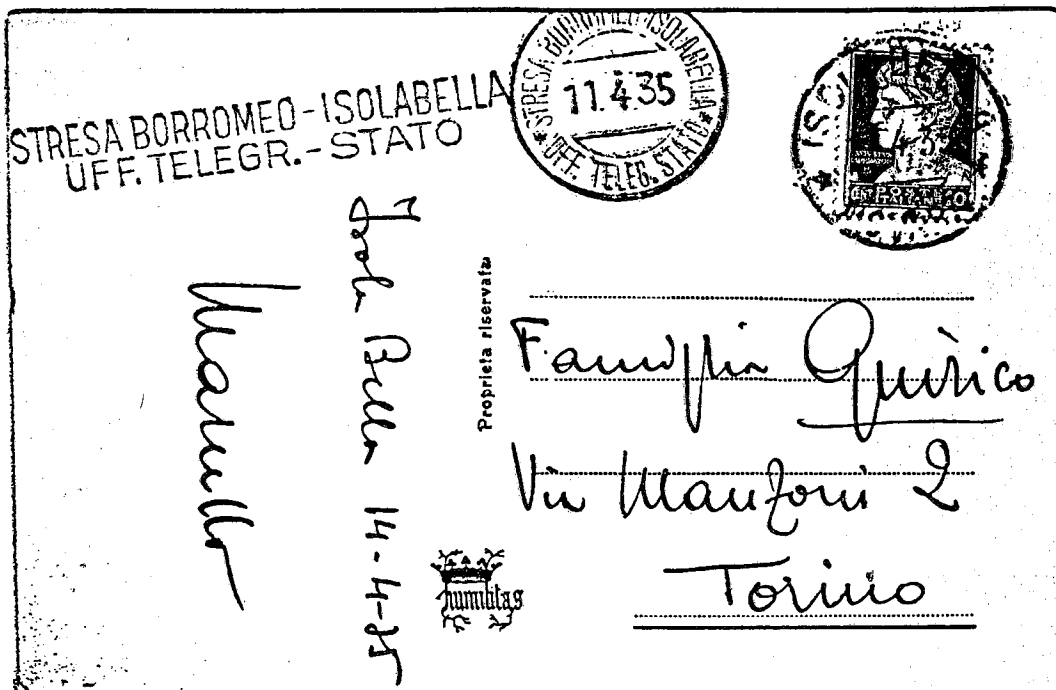 STRESA BORROMEO-ISOLABELLA
UFF. TELEGR.-STATO
STRESA BORROMEO ISOLABELLA
11.4.35
UFF. TELEG. STATO
Isola Bella 14-4-35
Proprieta riservata
Famiglia Quirico
Via Manzoni 2
Torino
humilitas